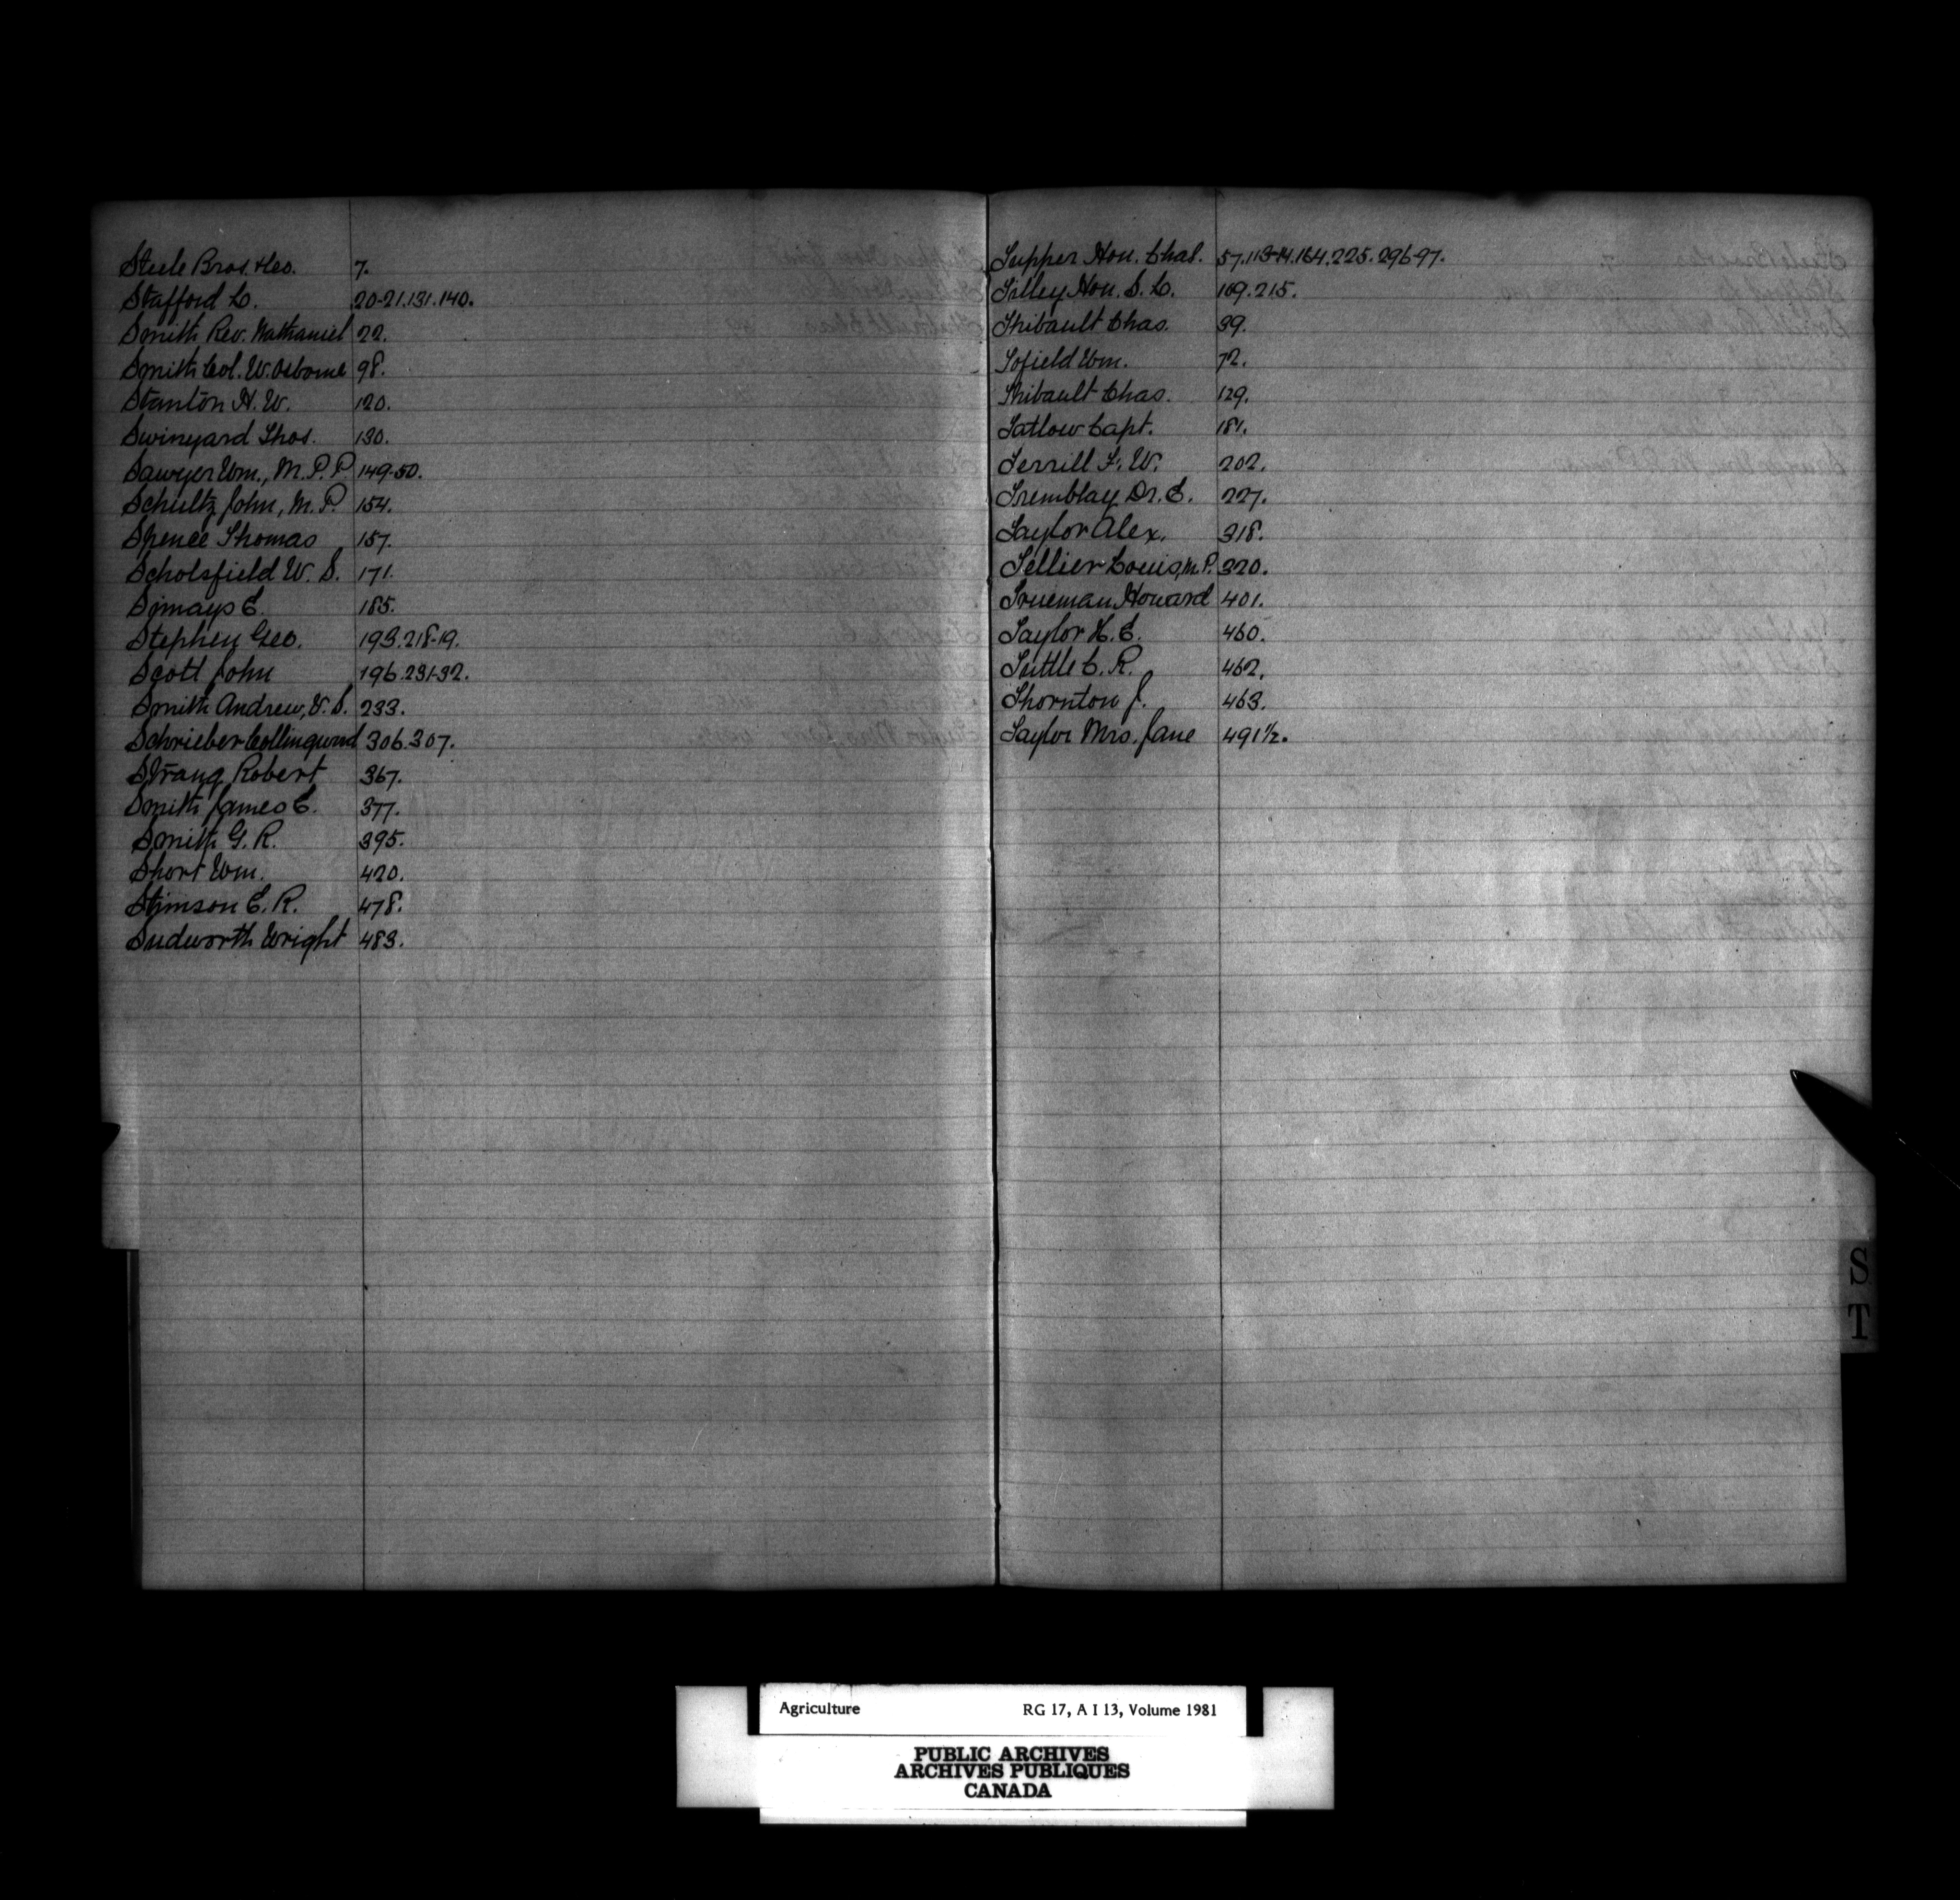 Steele Bros. & Co. 7.
Stafford L. 20-21.131.140.
Smith Rev. Nathaniel 22.
Smith Col. W. Osborne 98.
Stanton H. W. 120.
Swinyard Thos. 130.
Sawyer Wm., M.P.P. 149-50.
Schultz John, M.P. 154.
Spence Thomas 157.
Scholsfield W. S. 171.
Simays E. 185.
Stephen Geo. 193.218-19.
Scott John 196.231-32.
Smith Andrew, V.S. 233.
Schrieber Collingwood 306.307.
Strang Robert 367.
Smith James E. 377.
Smith G. R. 395.
Short Wm. 420.
Stimson E. R. 478.
Sudworth Wright 483.
Tupper Hon. Chas. 57.113-14.164.225.296-97.
Tilley Hon. S. L. 109.215.
Thibault Chas. 39.
Tofield Wm. 72.
Thibault Chas. 129.
Tatlow Capt. 181.
Terrill F. W. 202.
Tremblay Dr. E. 227.
Taylor Alex. 318.
Tellier Louis, M.P. 320.
Trueman Howard 401.
Taylor H. E. 460.
Tuttle C. R. 462.
Thornton J. 463.
Taylor Mrs. Jane 491½.
S
T
Agriculture RG 17, A I 13, Volume 1981
PUBLIC ARCHIVES
ARCHIVES PUBLIQUES
CANADA